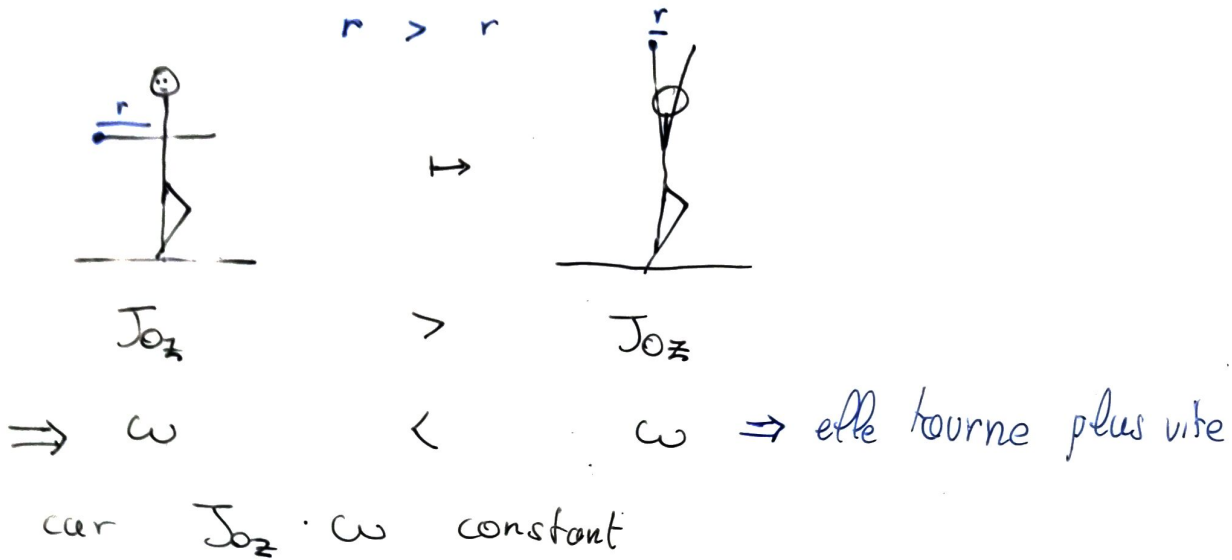 r > r
r
r
↦
J_Oz > J_Oz
⇒ ω < ω ⇒ elle tourne plus vite
car J_Oz · ω constant